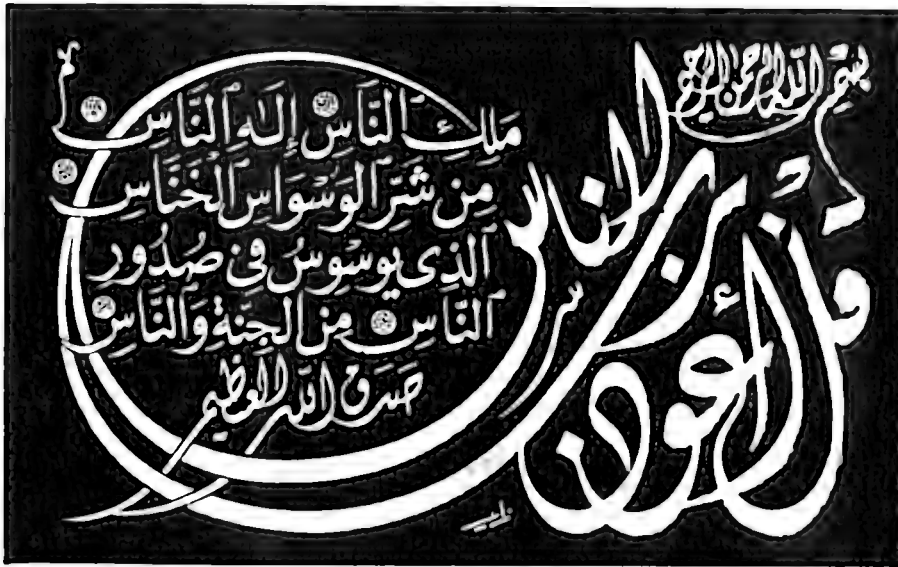 بسم الله الرحمن الرحيم
قل أعوذ برب الناس
مَلِكِ ٱلنَّاسِ إِلَٰهِ ٱلنَّاسِ
مِن شَرِّ ٱلْوَسْوَاسِ ٱلْخَنَّاسِ
ٱلَّذِى يُوَسْوِسُ فِى صُدُورِ
ٱلنَّاسِ مِنَ ٱلْجِنَّةِ وَٱلنَّاسِ
صدق الله العظيم